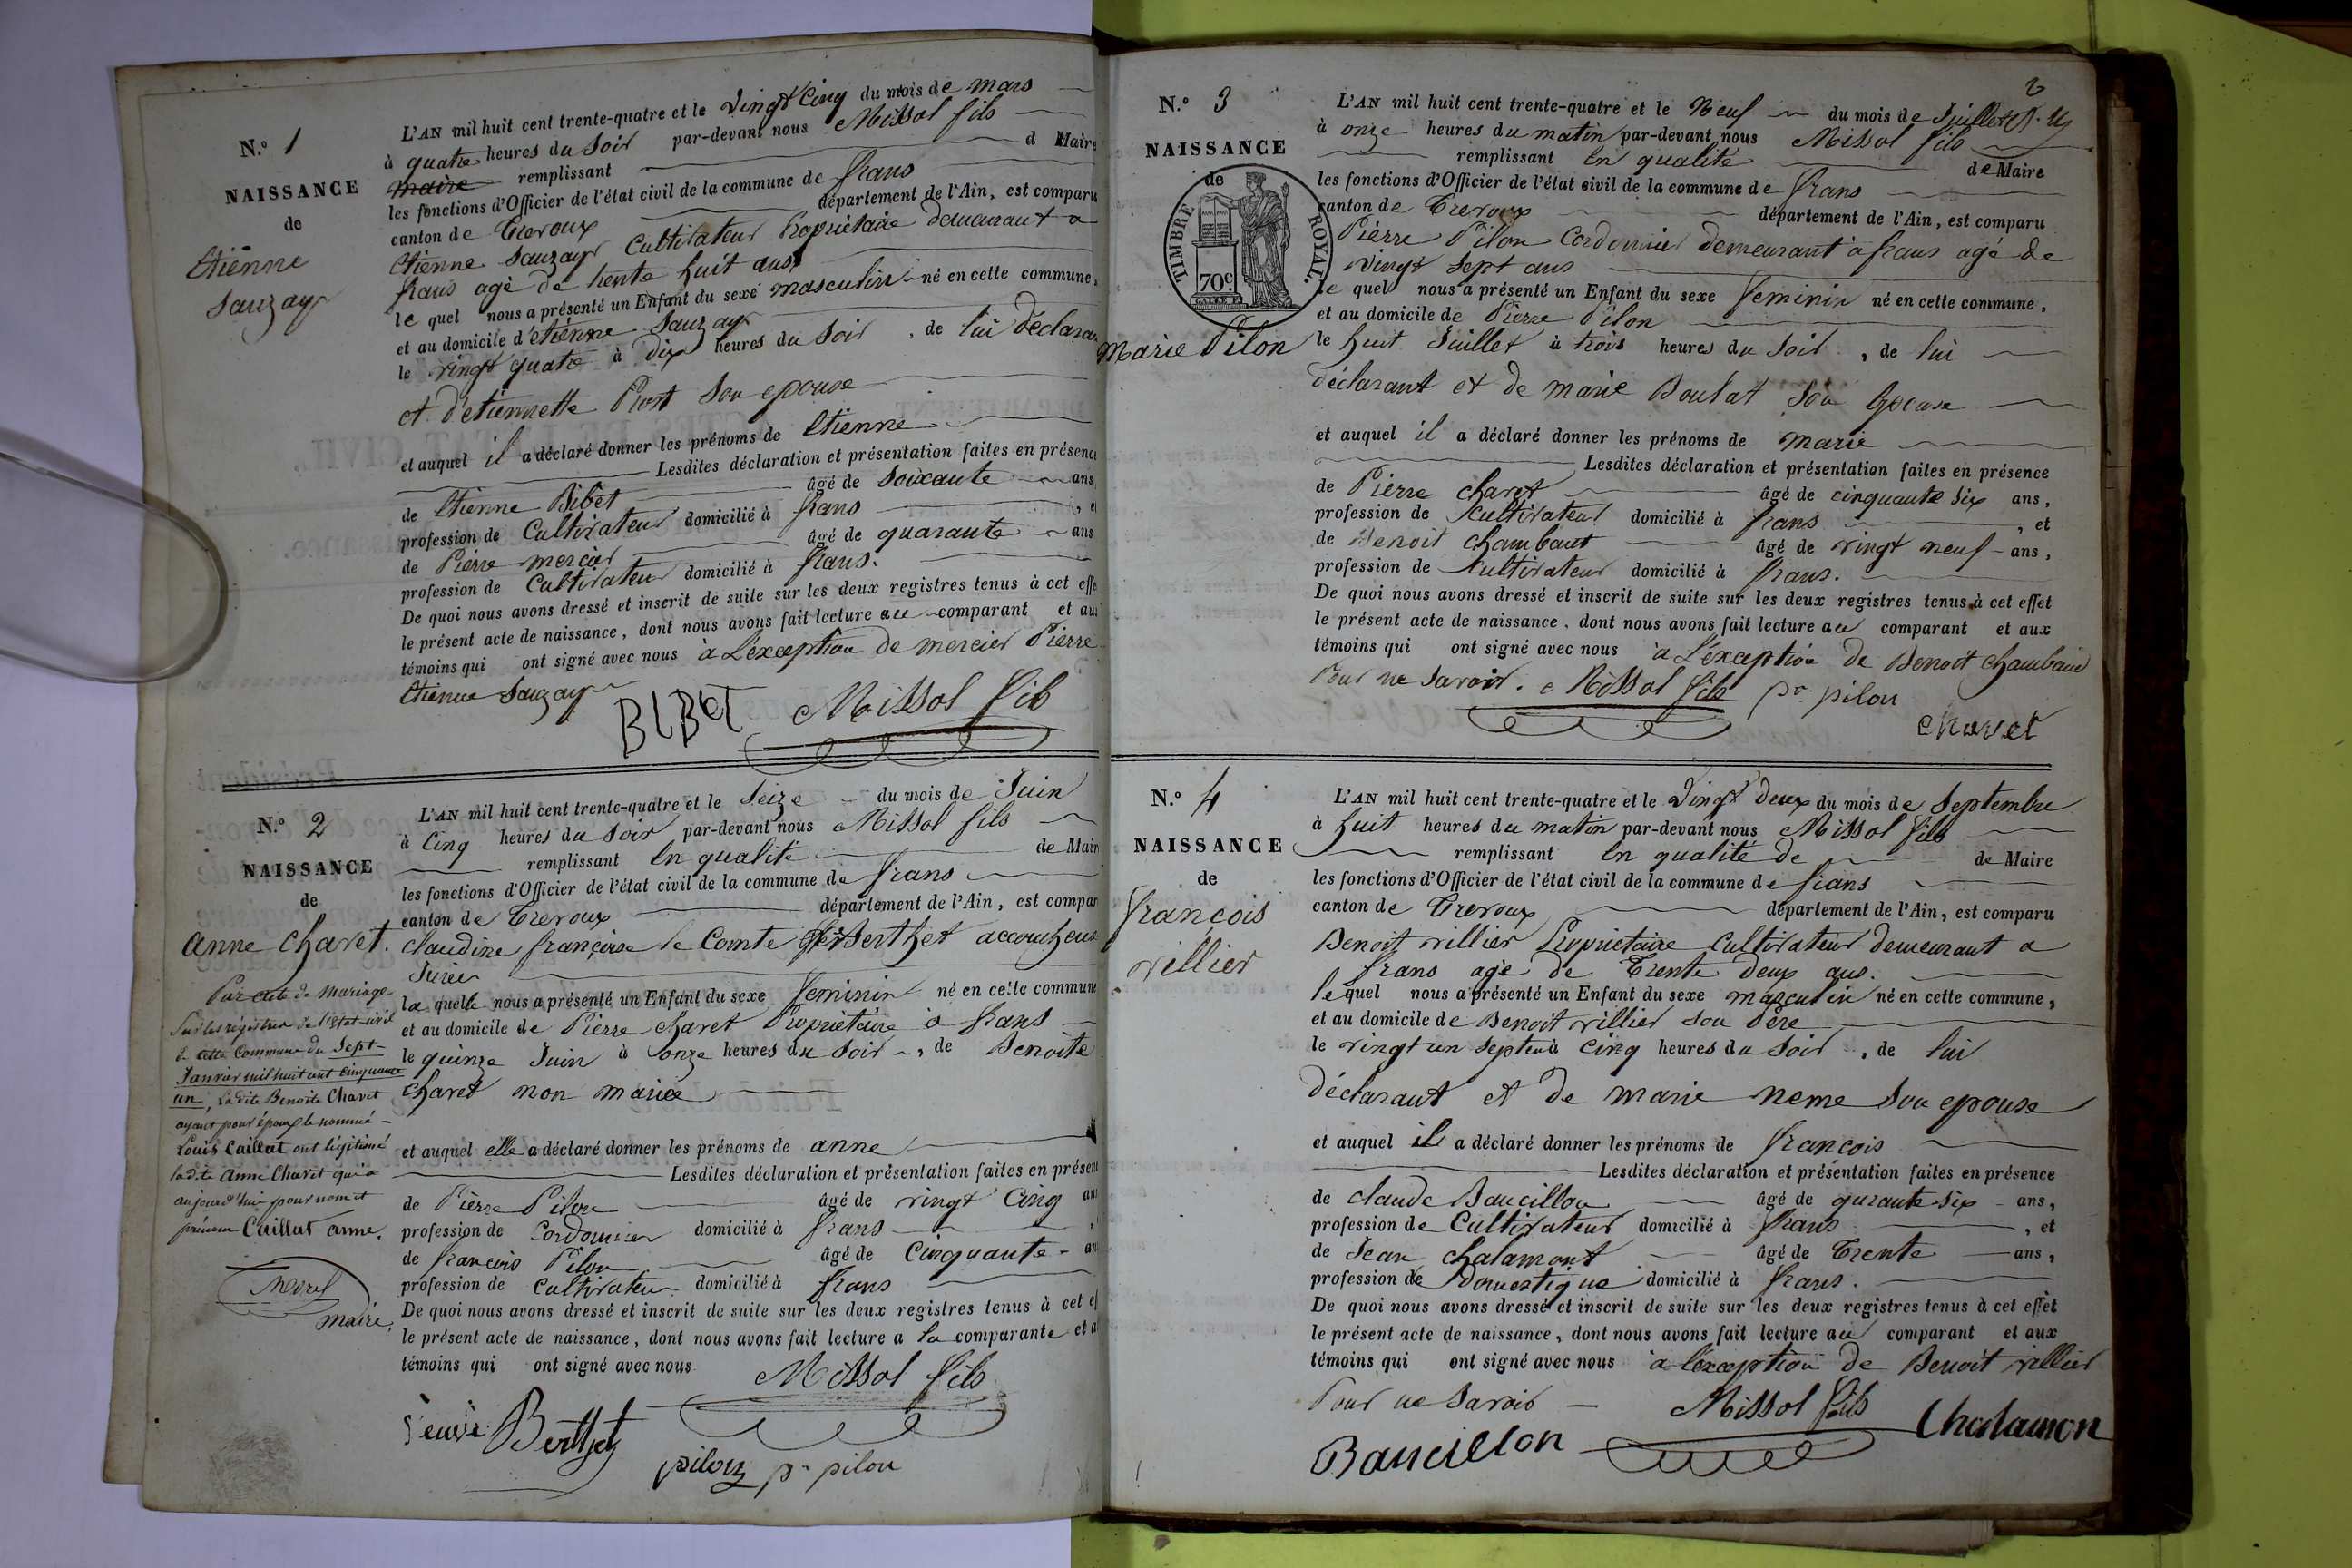 N.º 1
NAISSANCE
de
Etienne
Sauzay
L'AN mil huit cent trente-quatre et le vingt Cinq du mois de mars
à quatre heures du soir par-devant nous Missol fils
maire remplissant d Maire
les fonctions d'Officier de l'état civil de la commune de frans
canton de Trevoux département de l'Ain, est comparu
Etienne Sauzay Cultivateur Propriétaire demeurant a
frans agé de trente huit ans
le quel nous a présenté un Enfant du sexe masculin né en cette commune,
et au domicile d'etienne Sauzay
le vingt quatre à dix heures du soir, de lui déclarant
et d'etiennette Piost son epouse
et auquel il a déclaré donner les prénoms de Etienne
Lesdites déclaration et présentation faites en présence
de Etienne Bibet âgé de soixante ans,
profession de Cultivateur domicilié à frans, et
de Pierre mercier âgé de quarante ans
profession de Cultivateur domicilié à frans.
De quoi nous avons dressé et inscrit de suite sur les deux registres tenus à cet effe
le présent acte de naissance, dont nous avons fait lecture au comparant et aux
témoins qui ont signé avec nous à L'exception de mercier Pierre
Etienne Sauzay
BIBET Missol fils
N.º 2
NAISSANCE
de
anne Charet.
Par acte de Mariage
Sur les régistres de l'Etat-civil
de cette Commune du Sept
Janvier mil huit cent cinquante
un, Ladite Benoite Charet
ayant pour époux le nommé
Louis Caillat ont légitimé
ladite Anne Charet qui a
aujourd'hui pour nom et
prénom Caillat anne.
maire,
L'AN mil huit cent trente-quatre et le Seize du mois de Juin
à Cinq heures du soir par-devant nous Missol fils
remplissant En qualité de Mair
les fonctions d'Officier de l'état civil de la commune de frans
canton de Trevoux département de l'Ain, est compar
claudine françoise le Comte Berthet accoucheuse
Jurée
la quelle nous a présenté un Enfant du sexe feminin né en cette commune
et au domicile de Pierre charet Propriétaire à frans
le quinze Juin à onze heures du soir, de Benoite
charet non mariée
et auquel elle a déclaré donner les prénoms de anne
Lesdites déclaration et présentation faites en présen
de Pierre Pilon âgé de vingt Cinq ans
profession de Cordonnier domicilié à frans
de francois Pilon âgé de Cinquante an
profession de cultivateur domicilié à frans
De quoi nous avons dressé et inscrit de suite sur les deux registres tenus à cet ef
le présent acte de naissance, dont nous avons fait lecture a la comparante et a
témoins qui ont signé avec nous Missol fils
Berthet
pilon pre pilon
2
N.º 3
NAISSANCE
de
TIMBRE ROYAL.
70c
Marie Pilon
L'AN mil huit cent trente-quatre et le Neuf du mois de Juillet
à onze heures du matin par-devant nous Missol fils
remplissant En qualité de Maire
les fonctions d'Officier de l'état civil de la commune de frans
canton de Trevoux département de l'Ain, est comparu
Pierre Pilon Cordonnier demeurant à frans agé de
vingt sept ans
le quel nous a présenté un Enfant du sexe feminin né en cette commune,
et au domicile de Pierre Pilon
le huit Juillet à trois heures du soir, de lui
déclarant et de marie Boulat son Epouse
et auquel il a déclaré donner les prénoms de marie
Lesdites déclaration et présentation faites en présence
de Pierre charet âgé de cinquante six ans,
profession de cultivateur domicilié à frans, et
de Benoit chambaut âgé de vingt neuf ans,
profession de cultivateur domicilié à frans.
De quoi nous avons dressé et inscrit de suite sur les deux registres tenus à cet effet
le présent acte de naissance, dont nous avons fait lecture au comparant et aux
témoins qui ont signé avec nous à L'exception de Benoit chambaud
Pour ne savoir. Missol fils pre pilon
charet
N.º 4
NAISSANCE
de
francois
villier
L'AN mil huit cent trente-quatre et le Vingt deux du mois de Septembre
à huit heures du matin par-devant nous Missol fils
remplissant En qualité de de Maire
les fonctions d'Officier de l'état civil de la commune de frans
canton de Trevoux département de l'Ain, est comparu
Benoit villier Propriétaire cultivateur demeurant a
frans agé de Trente deux ans.
le quel nous a présenté un Enfant du sexe masculin né en cette commune,
et au domicile de Benoit villier son Père
le vingt un septe à cinq heures du soir, de lui
déclarant et de marie neme son epouse
et auquel il a déclaré donner les prénoms de francois
Lesdites déclaration et présentation faites en présence
de claude Baucillon âgé de qurante six ans,
profession de Cultivateur domicilié à frans, et
de Jean Chalamont âgé de Trente ans,
profession de Domestique domicilié à frans.
De quoi nous avons dressé et inscrit de suite sur les deux registres tenus à cet effet
le présent acte de naissance, dont nous avons fait lecture au comparant et aux
témoins qui ont signé avec nous à l'exception de Benoit villier
Pour ne savoir Missol fils Chalamon
Bancillon